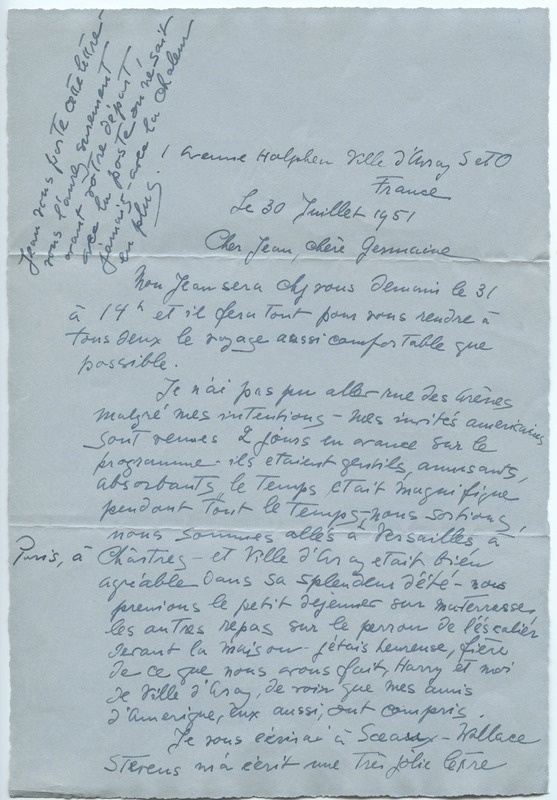 Jean vous porte cette lettre
vous l'aurez surement
avant votre départ
avec la poste on ne sait
jamais - avec la chaleur
en plus.
1 avenue Halphen Ville d'Avray S et O
France
Le 30 Juillet 1951
Cher Jean, chère Germaine
Mon Jean sera chez vous demain le 31
à 14h et il fera tout pour vous rendre à
tous deux le voyage aussi comfortable que
possible.
Je n'ai pas pu aller rue des Arènes
malgré mes intentions - mes invités americains
sont venues 2 jours en avance sur le
programme - ils etaient gentils, amusants,
absorbants, le temps etait magnifique
pendant tout le temps - nous sortions,
nous sommes allés à Versailles à
Paris, à Chartres - et Ville d'Avray etait bien
agréable dans sa splendeur d'été - nous
prenions le petit dejeuner sur ma terrasse,
les autres repas sur le perron de l'escalier
devant la maison - j'étais heureuse, fière
de ce que nous avons fait, Harry et moi
de Ville d'Avray, de voir que mes amis
d'Amerique, eux aussi, ont compris.
Je vous écrirai à Sceaux - Wallace
Stevens m'a écrit une très jolie lettre